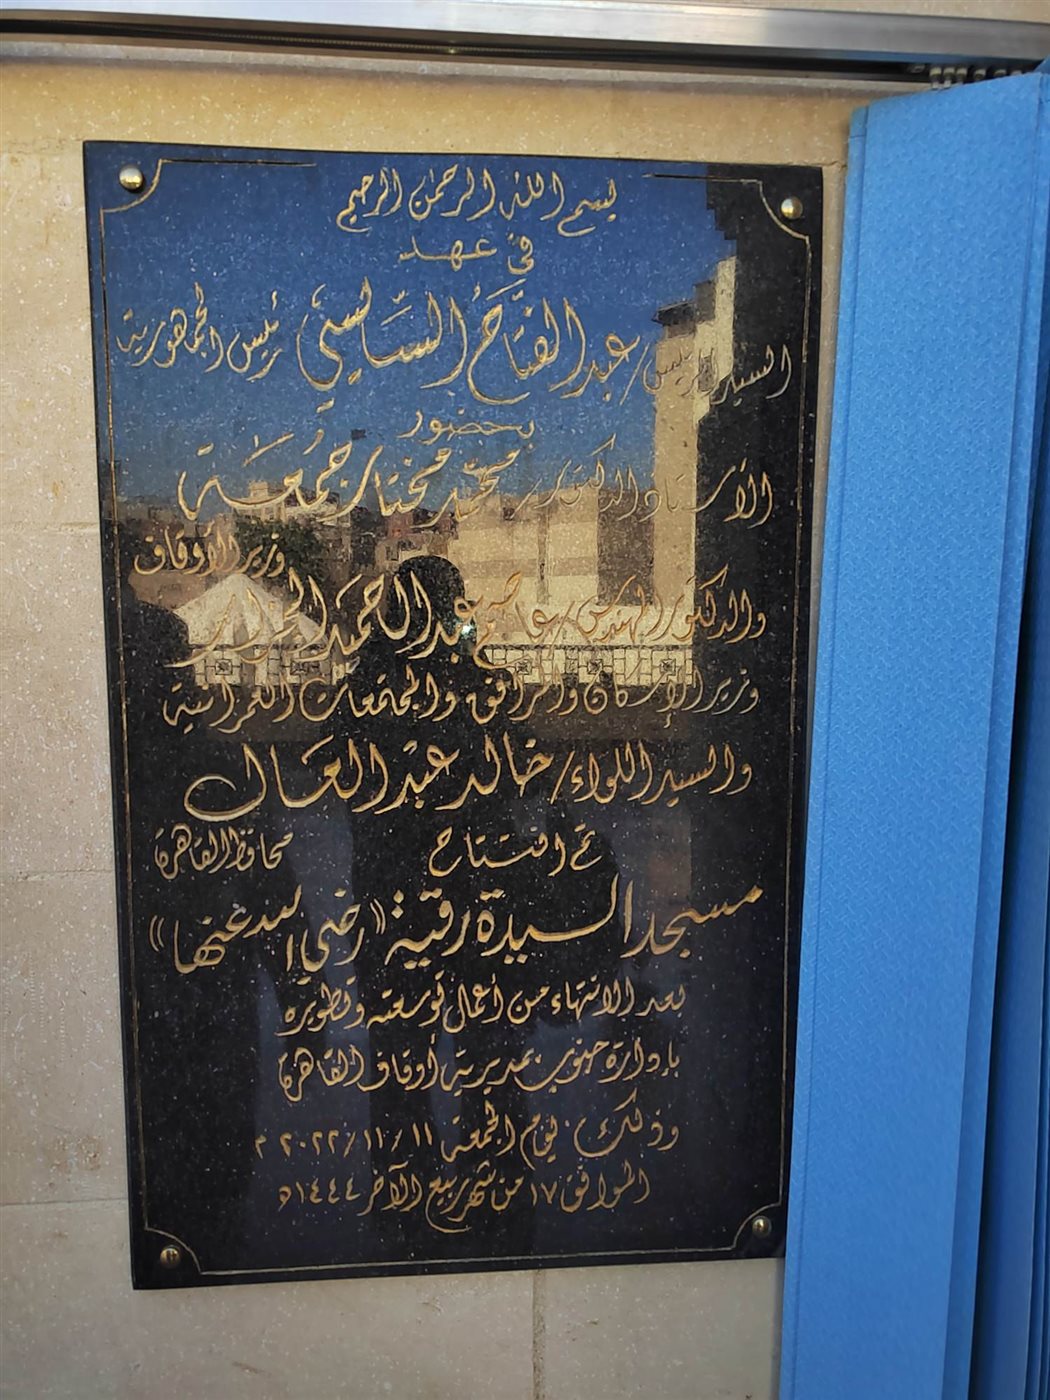 بسم الله الرحمن الرحيم
في عهد
السيد الرئيس / عبد الفتاح السيسي رئيس الجمهورية
بحضور
الأستاذ الدكتور / محمد مختار جمعة
وزير الأوقاف
والدكتور المهندس / عاصم عبد الحميد الجزار
وزير الإسكان والمرافق والمجتمعات العمرانية
والسيد اللواء / خالد عبد العال
محافظ القاهرة
تم افتتاح
مسجد السيدة رقية "رضي الله عنها"
بعد الانتهاء من أعمال توسعته وتطويره
بإدارة جنوب بمديرية أوقاف القاهرة
وذلك يوم الجمعة ١١ / ١١ / ٢٠٢٢ م
الموافق ١٧ من شهر ربيع الآخر ١٤٤٤ ه